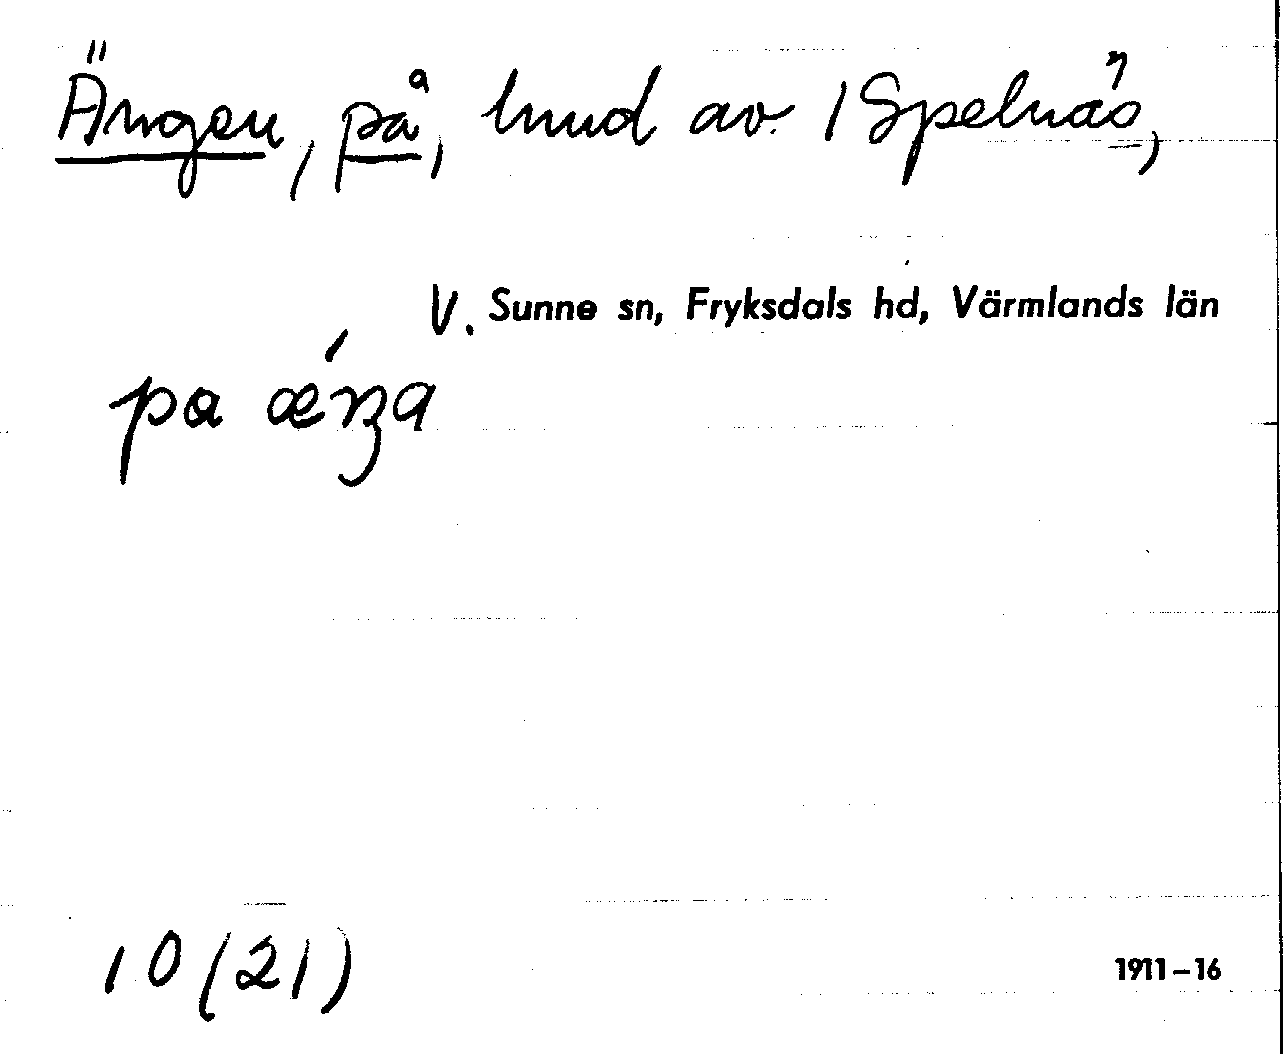 Ängen, på, hmd av 1 Spelnäs,
V. Sunne sn, Fryksdals hd, Värmlands län
pa
10 (21)
1911–16